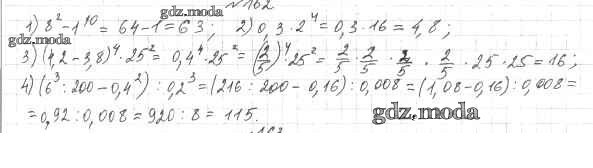 № 162
gdz.moda
1) 8² - 1¹⁰ = 64 - 1 = 63; 2) 0,3 · 2⁴ = 0,3 · 16 = 4,8;
gdz.moda
3) (4,2 - 3,8)⁴ · 25² = 0,4⁴ · 25² = (2/5)⁴ · 25² = 2/5 · 2/5 · 2/5 · 2/5 · 25 · 25 = 16;
4) (6³ : 200 - 0,4²) : 0,2³ = (216 : 200 - 0,16) : 0,008 = (1,08 - 0,16) : 0,008 =
= 0,92 : 0,008 = 920 : 8 = 115.
gdz.moda